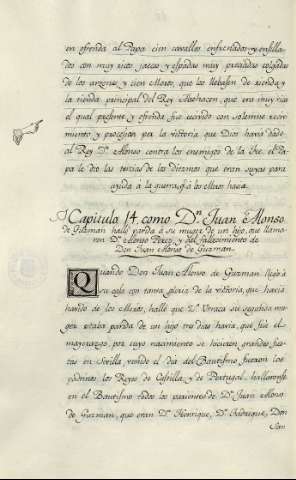 en ofrenda al Papa cien cavallos enfrenados y ensilla-
dos con muy ricos jaeces y espadas muy preciadas colgadas
de los arzones y cien Moros, que los llebasen de rienda, y
la tienda principal del Rey Albohacen, que era muy rica
el qual presente y ofrenda fue recivido con solemne recivi-
miento y procesion por la vittoria que Dios havia dado
al Rey Dn. Alonso contra los enemigos de la fee. el Pa-
pa le dio las tercias de los Diezmos que eran suyas para
ayuda a la guerra, q̃ a los Moros hacia.
Capitulo 14. como Dn. Juan Alonso
de Guzman hallò parida à su muger de un hijo, que llama-
ron Dn. Alonso Perez, y del fallecimiento de
Don Juan Alonso de Guzman.
Quando Don Juan Alonso de Guzman llegò à
su casa con tanta gloria de la vittoria, que havia
havido de los Moros, hallò que Da. Urraca su segunda mu-
ger estaba parida de un hijo tres dias havia, que fue el
mayorazgo, por cuyo nacimiento se hicieron grandes fies-
tas en Sevilla, venido el dia del Bautismo fueron los
padrinos los Reyes de Castilla, y de Portugal, hallaronse
en el Bautismo todos los parientes de Dn. Juan Alonso
de Guzman, que eran Dn. Henrique, Dn. Fadrique, Don
Juan